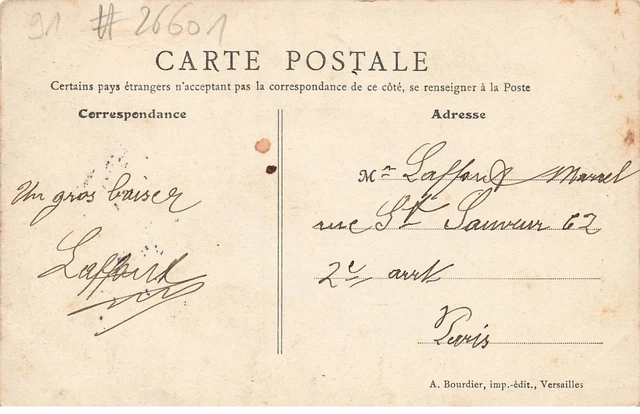 91 # 26601
CARTE POSTALE
Certains pays étrangers n'acceptant pas la correspondance de ce côté, se renseigner à la Poste
Correspondance
Adresse
Un gros baiser
Laffont
Mr Laffont Marcel
rue St Sauveur 62
2e arrt
Paris
A. Bourdier, imp.-édit., Versailles